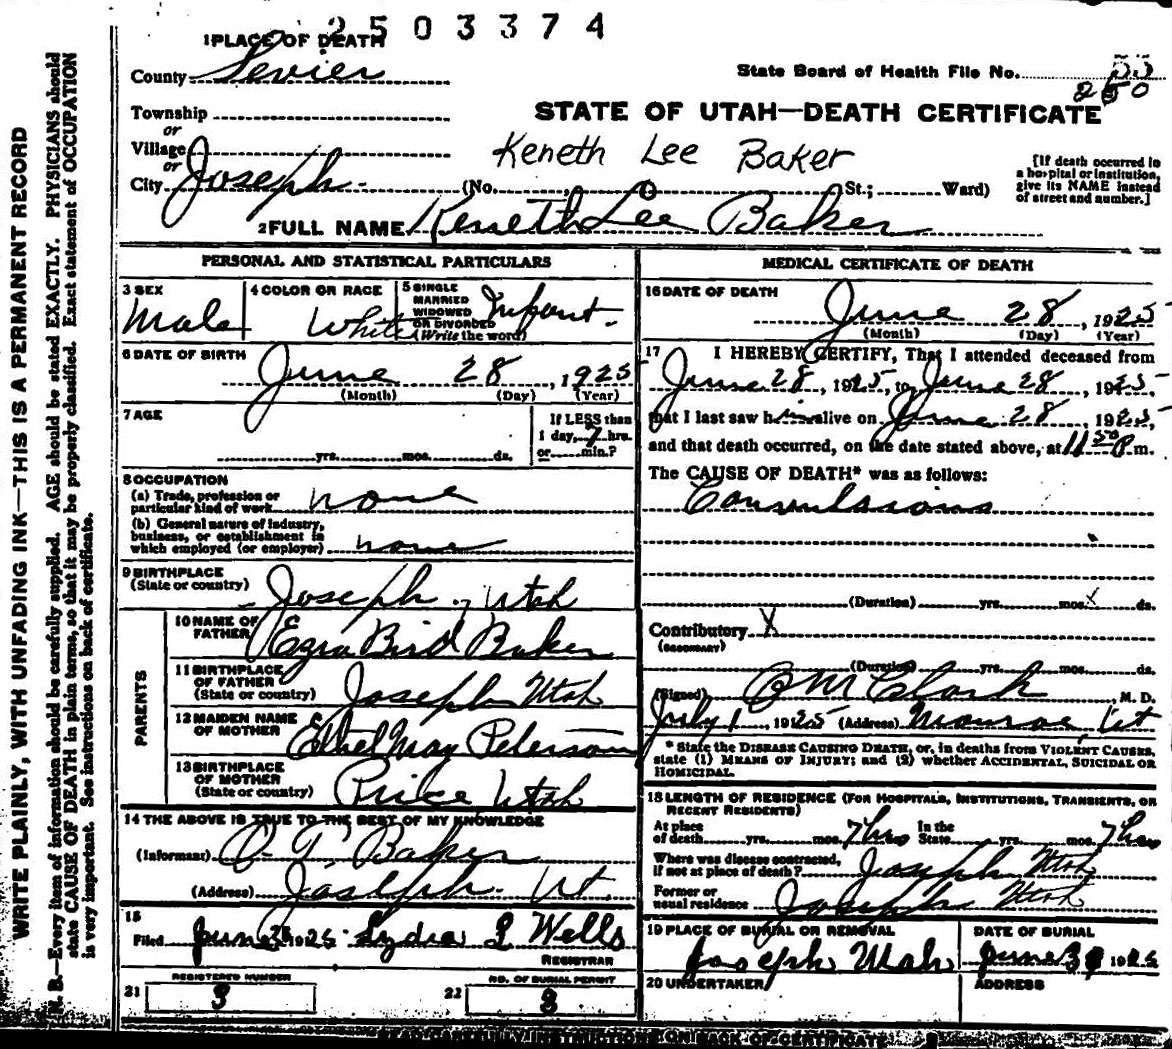 2503374
1 PLACE OF DEATH
County Sevier
State Board of Health File No. 55
250
Township
or
Village
or
City Joseph (No. St.; Ward)
STATE OF UTAH—DEATH CERTIFICATE
Keneth Lee Baker
[If death occurred in a hospital or institution, give its NAME instead of street and number.]
2 FULL NAME Kenneth Lee Baker
PERSONAL AND STATISTICAL PARTICULARS
3 SEX
Male
4 COLOR OR RACE
White
5 SINGLE
MARRIED
WIDOWED
OR DIVORCED
(Write the word)
Infant.
6 DATE OF BIRTH
June 28, 1925
(Month) (Day) (Year)
7 AGE
yrs. mos. ds.
If LESS than
1 day, 7 hrs.
or min.?
8 OCCUPATION
(a) Trade, profession or
particular kind of work none
(b) General nature of industry,
business, or establishment in
which employed (or employer) none
9 BIRTHPLACE
(State or country)
Joseph, Utah
PARENTS
10 NAME OF
FATHER Ezra Bird Baker
11 BIRTHPLACE
OF FATHER
(State or country) Joseph Utah
12 MAIDEN NAME
OF MOTHER Ethel May Peterson
13 BIRTHPLACE
OF MOTHER
(State or country) Price Utah
14 THE ABOVE IS TRUE TO THE BEST OF MY KNOWLEDGE
(Informant) O. T. Baker
(Address) Joseph. Ut.
15
Filed June 1925 Lydia L Wells
REGISTRAR
REGISTERED NUMBER
21 3
NO. OF BURIAL PERMIT
22 3
MEDICAL CERTIFICATE OF DEATH
16 DATE OF DEATH
June 28, 1925
(Month) (Day) (Year)
17 I HEREBY CERTIFY, That I attended deceased from
June 28, 1925, to June 28, 1925,
that I last saw him alive on June 28, 1925,
and that death occurred, on the date stated above, at 11 50 P. m.
The CAUSE OF DEATH* was as follows:
Convulsions
(Duration) yrs. mos. x ds.
Contributory X
(SECONDARY)
(Duration) yrs. mos. ds.
(Signed) M Clark M. D.
July 1, 1925 (Address) Monroe, Ut
* State the DISEASE CAUSING DEATH, or, in deaths from VIOLENT CAUSES,
state (1) MEANS OF INJURY; and (2) whether ACCIDENTAL, SUICIDAL OR
HOMICIDAL.
18 LENGTH OF RESIDENCE (FOR HOSPITALS, INSTITUTIONS, TRANSIENTS, OR
RECENT RESIDENTS)
At place
of death yrs. mos. 7 hrs In the
State yrs. mos. 7 hrs
Where was disease contracted,
if not at place of death? Joseph Utah
Former or
usual residence Joseph Utah
19 PLACE OF BURIAL OR REMOVAL
Joseph Utah
DATE OF BURIAL
June 30 1925
20 UNDERTAKER
ADDRESS
READ CAREFULLY INSTRUCTIONS ON BACK OF CERTIFICATE
WRITE PLAINLY, WITH UNFADING INK—THIS IS A PERMANENT RECORD
N. B.—Every item of information should be carefully supplied. AGE should be stated EXACTLY. PHYSICIANS should
state CAUSE OF DEATH in plain terms, so that it may be properly classified. Exact statement of OCCUPATION
is very important. See instructions on back of certificate.